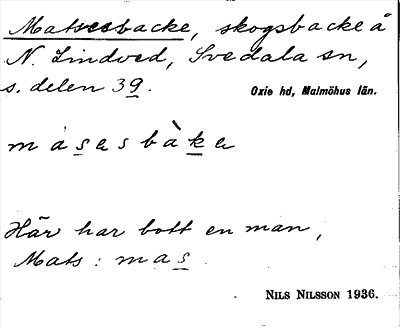 Matsesbacke, skogsbacke å
N. Lindved, Svedala sn,
s. delen 39.
Oxie hd, Malmöhus län.
másesbàke
Här har bott en man,
Mats: mas.
NILS NILSSON 1936.